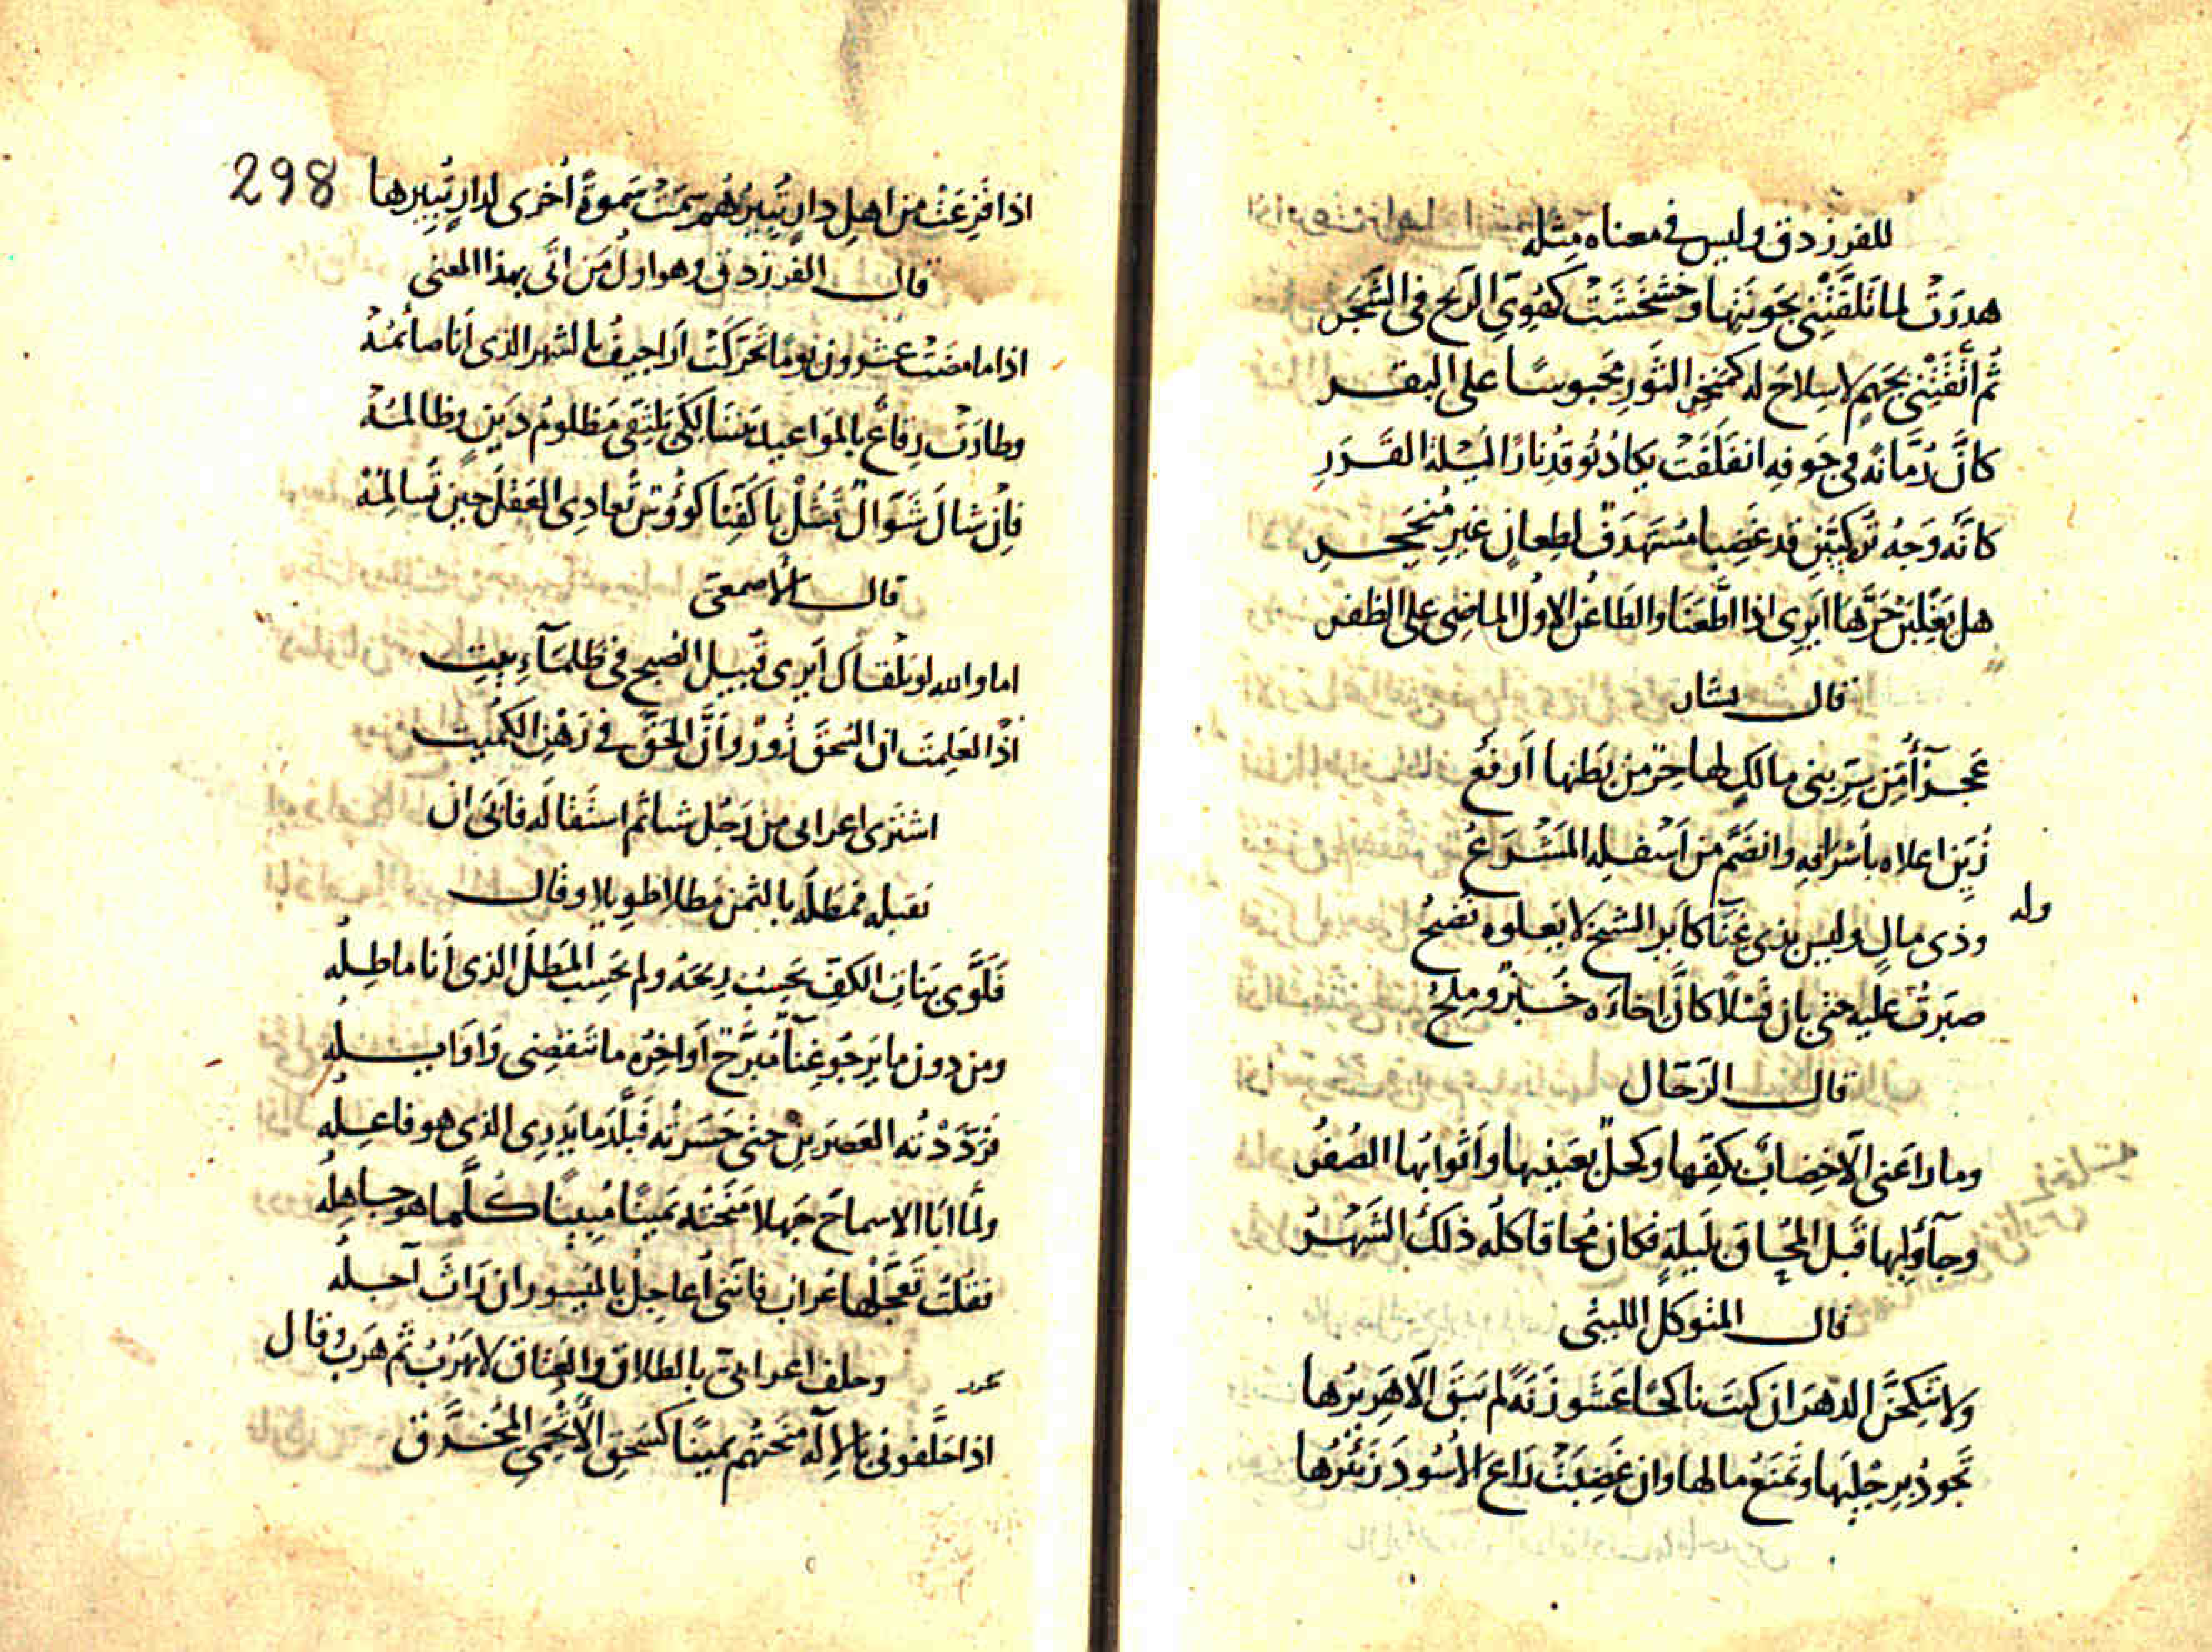 للفرزدق وليس في معناه مثله
هدرت لما تلقتني بجونتها وخشخشت كهوي الريح في الشجر
ثم اتقتني بجهم لا سلاح له كمنخر الثور محبوسا على البقر
كان رمانة في جوفه انفلقت يكاد توقد نارا ليلة القرر
كانه وجه تركيين قد غضبا مستهدف لطعان غير منجحر
هل يغلبن حرها ايري اذا اطعنا والطاعن الاول الماضي على الظفر
قال بشار
عجزآء من سر بني مالك لها حر من بطنها ارفع
زين اعلاه باشرافه وانضم من اسفله المشرع
وله
وذي مال وليس بذي غنآ كاير الشيخ لا يعلوه نضح
صبرت عليه حتى بان فسلا كان اخاءه خبز وملح
قال الرحال
وما راعني الا خضاب بكفها وكحل بعينيها واثوابها الصفر
وجآؤا بها قبل المحاق بليلة فكان محاقا كله ذلك الشهر
قال المتوكل الليثي
ولا تنكحن الدهر ان كنت ناكحا عشوزنة لم يبق الا هريرها
تجود برجليها وتمنع مالها وان غضبت راع الاسود زئيرها
298
اذا فرغت من اهل دار تبيرهم سمت سموة اخرى لدار تبيرها
قال الفرزدق وهو اول من اتى بهذا المعنى
اذا ما مضت عشرون يوما تحركت اراجيف بالشهر الذي انا صائمه
وطارت رقاع بالمواعيد بيننا لكي يلتقي مظلوم دين وظالمه
فان شال شوال تشل باكفنا كؤوس تعادي العقل حين تسالمه
قال الاصمعي
اما والله لو يلقاك ايري قبيل الصبح في ظلمآء بيت
اذا لعلمت ان السحق زور وان الحق في زهن الكميت
اشترى اعرابي من رجل شيا ثم استقاله فابى ان
يقيله فمطله بالثمن مطلا طويلا وقال
فلوى بنات الكف يحسب ربحه ولم يحسب المطل الذي انا ماطله
ومن دون ما يرجو غنآء مبرح اواخره ما تنقضي واوايله
تردد ته العصرين حتى حسرته فبلد ما يدري الذي هو فاعله
ولما ابا الا سماح جهلا منحته يمينا مبينا كلما هو جاهله
فقلت تعجلها غراب فانني اعاجل بالميسور ان راث آجله
وحلف اعرابي بالطلاق والعتاق لا يهرب ثم هرب وقال
اذا حلفوني بالاله منحتهم يمينا كسحق الاتحمي المخرق